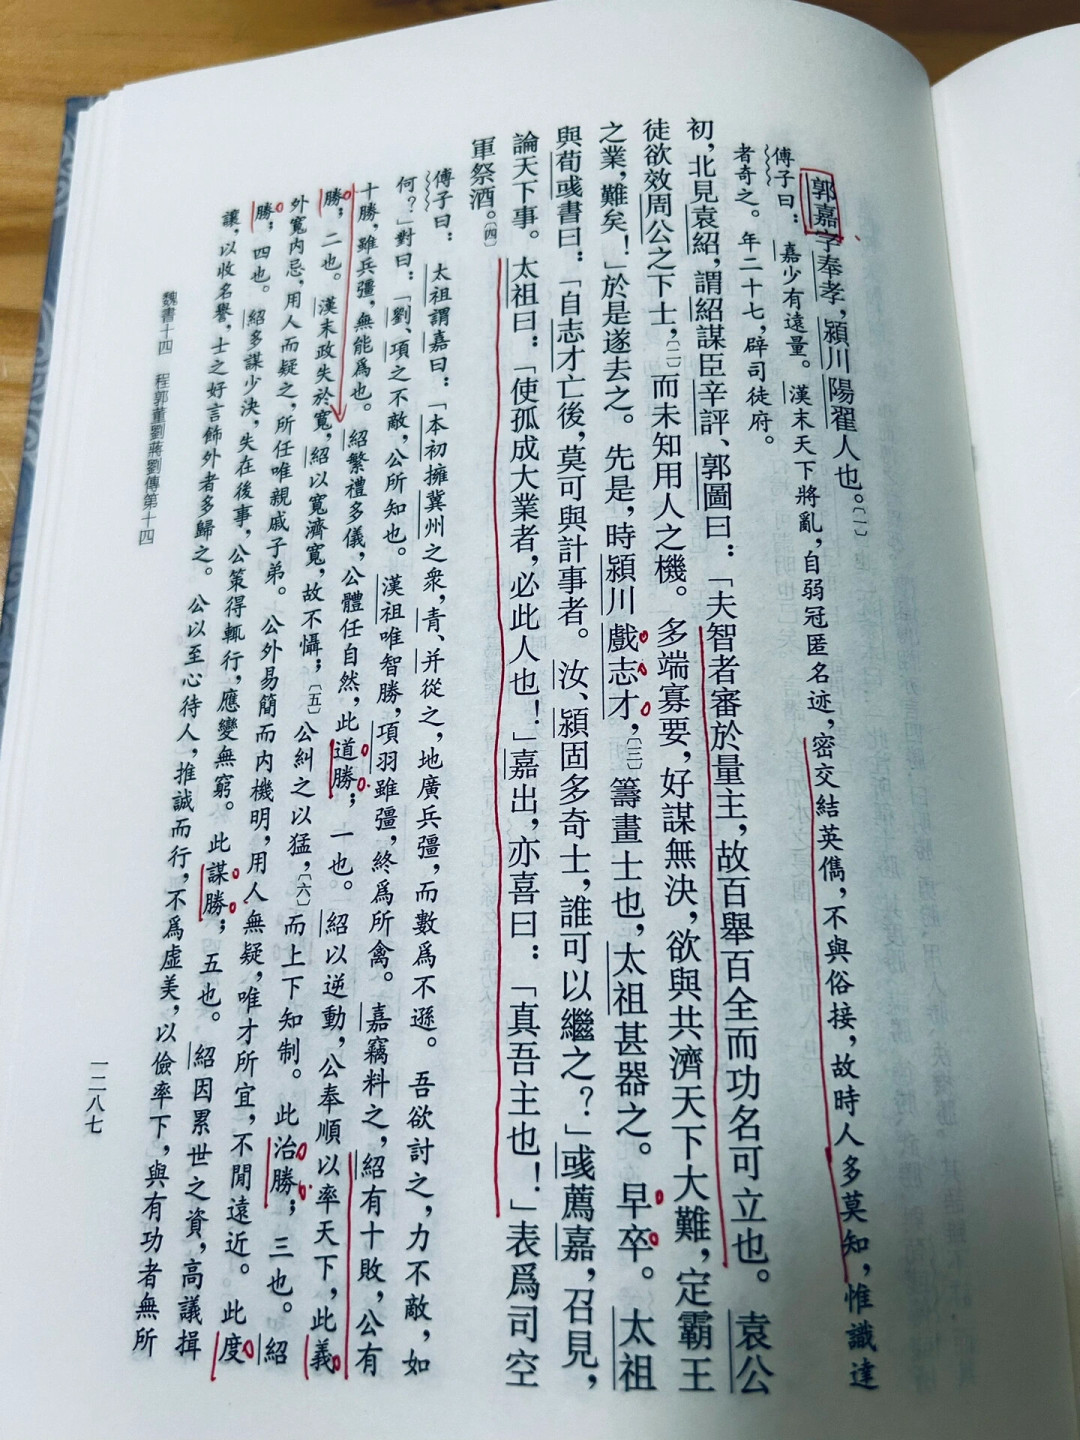 郭嘉字奉孝，潁川陽翟人也。〔一〕
傅子曰：嘉少有遠量。漢末天下將亂，自弱冠匿名迹，密交結英儁，不與俗接，故時人多莫知，惟識達
者奇之。年二十七，辟司徒府。
初，北見袁紹，謂紹謀臣辛評、郭圖曰：「夫智者審於量主，故百舉百全而功名可立也。袁公
徒欲效周公之下士，〔二〕而未知用人之機。多端寡要，好謀無決，欲與共濟天下大難，定霸王
之業，難矣！」於是遂去之。先是，時潁川戲志才，〔三〕籌畫士也，太祖甚器之。早卒。太祖
與荀彧書曰：「自志才亡後，莫可與計事者。汝、潁固多奇士，誰可以繼之？」彧薦嘉，召見，
論天下事。太祖曰：「使孤成大業者，必此人也！」嘉出，亦喜曰：「真吾主也！」表爲司空
軍祭酒。〔四〕
傅子曰：太祖謂嘉曰：「本初擁冀州之衆，青、并從之，地廣兵彊，而數爲不遜。吾欲討之，力不敵，如
何？」對曰：「劉、項之不敵，公所知也。漢祖唯智勝，項羽雖彊，終爲所禽。嘉竊料之，紹有十敗，公有
十勝，雖兵彊，無能爲也。紹繁禮多儀，公體任自然，此道勝，一也。紹以逆動，公奉順以率天下，此義
勝，二也。漢末政失於寬，紹以寬濟寬，故不懾；〔五〕公糾之以猛，〔六〕而上下知制。此治勝，三也。紹
外寬內忌，用人而疑之，所任唯親戚子弟。公外易簡而內機明，用人無疑，唯才所宜，不閒遠近。此度
勝，四也。紹多謀少決，失在後事，公策得輒行，應變無窮。此謀勝，五也。紹因累世之資，高議揖
讓，以收名譽，士之好言飾外者多歸之。公以至心待人，推誠而行，不爲虛美，以儉率下，與有功者無所
魏書十四　程郭董劉蔣劉傳第十四
一二八七